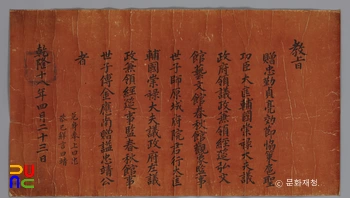 敎旨
贈忠勤貞亮效節協策扈聖
功臣大匡輔國崇祿大夫議
政府領議政兼領經筵弘文
館藝文館春秋館觀象監事
世子師原城府院君行大匡
輔國崇祿大夫議政府左議
政兼領經筵事監春秋館事
世子傅金應南贈諡忠靖公
者
乾隆十八年四月二十三日
危身奉上曰忠
恭己鮮言曰靖
© 문화재청